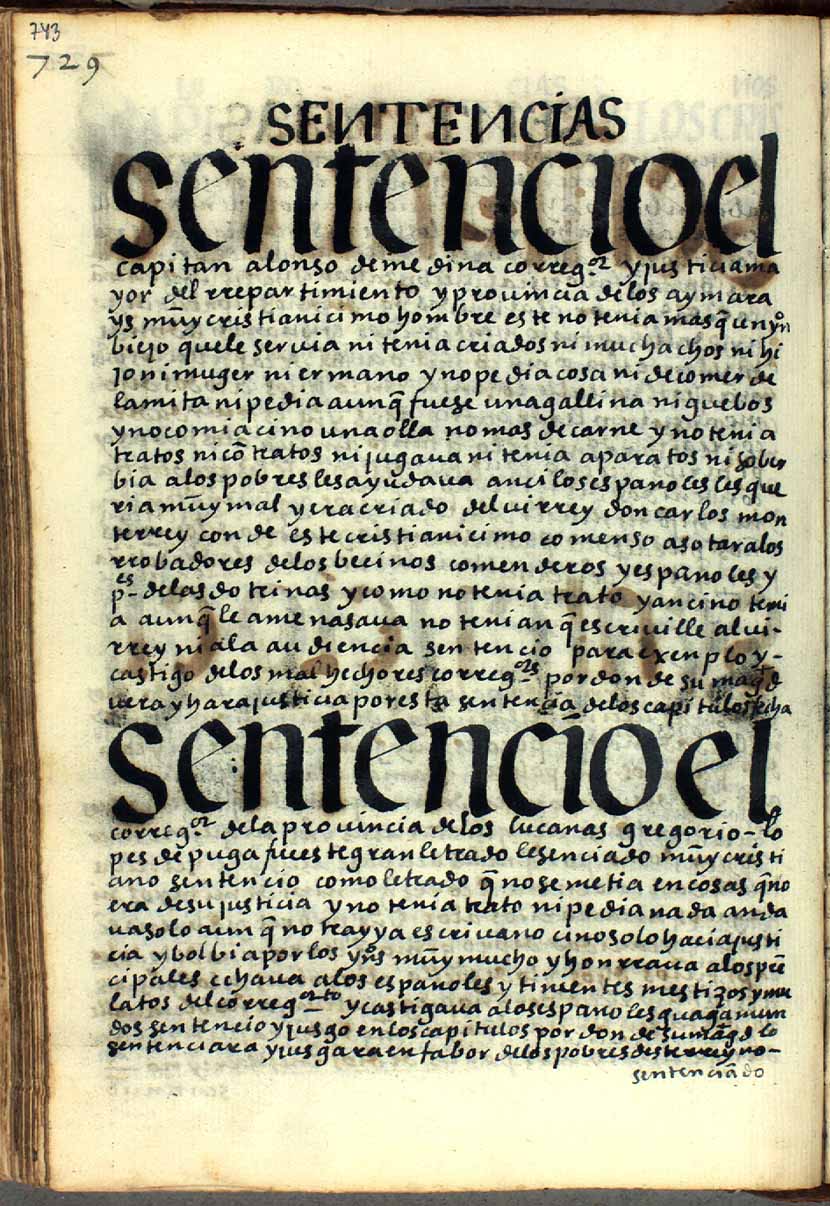 743
729
SENTENCIAS
sentencio el
capitan alonso de medina correg.or y justicia ma
yor del rrepartimiento y provincia de los aymara
ys muy cristianicimo hombre este no tenia mas q̃ un yn.o
biejo que le servia ni tenia criados ni muchachos ni hi
jo ni muger ni ermano y no pedia cosa ni de comer de
la mita ni pedia aunq̃ fuese una gallina ni guebos
y no comia cino una olla no mas de carne y no tenia
tratos ni cõtratos ni jugava ni tenia aparatos ni sober
bia a los pobres les ayudava anci los espanoles les que
ria muy mal y era criado del virrey don carlos mon
terrey conde este cristianicimo comenso asotar a los
rrobadores de los becinos comenderos y espanoles y
p.es de las dotrinas y como no tenia trato y anci no temi
a aunq̃ le amenasava no tenian q̃ escriville al vi-
rrey ni a la audiencia sentencio para exenplo y-
castigo de los mal hechores correg.ores por donde su mag.d
vera y hara justicia por esta sentencia de los capitulos fecha
sentencio el
correg.or de la provincia de los lucanas gregorio - lo
pes de puga fue este gran letrado lesenciado muy cristi
ano sentencio como letrado q̃ no se metia en cosas q̃ no
era de su justicia y no tenia trato ni pedia nada anda
va solo aunq̃ no trayya escrivano cino solo hacia justi
cia y bolbia por los yn.os muy mucho y honrrava a los prĩ
cipales echava a los espanoles y tinientes mestizos y mu
latos del correg.or.to y castigava a los espanoles vagamun
dos sentencio y jusgo en los capitulos por donde su mag.d lo
sentenciara y jusgara en fabor de los pobres deste rreyno-
sentenciãdo